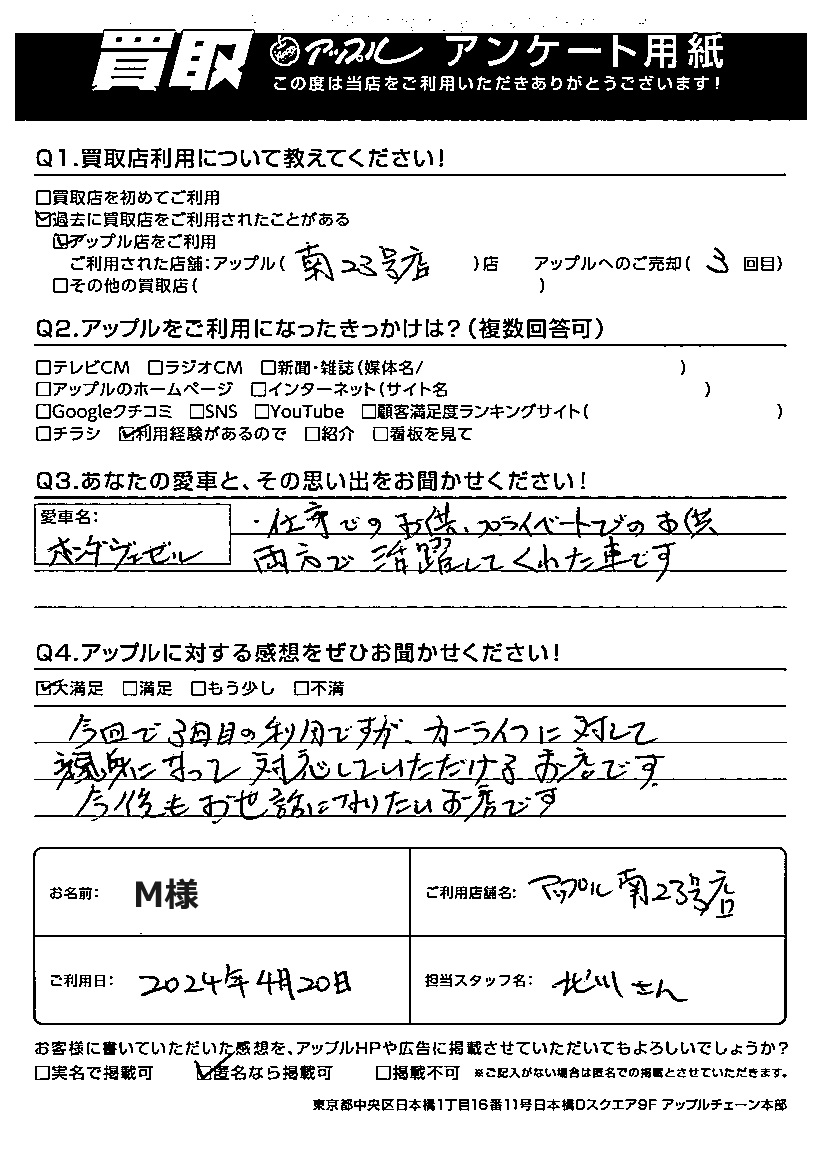 買取 アップル アンケート用紙
この度は当店をご利用いただきありがとうございます!
Q1.買取店利用について教えてください!
□買取店を初めてご利用
☑過去に買取店をご利用されたことがある
☑アップル店をご利用
ご利用された店舗:アップル( 南23号店 )店 アップルへのご売却( 3 回目)
□その他の買取店( )
Q2.アップルをご利用になったきっかけは?(複数回答可)
□テレビCM □ラジオCM □新聞・雑誌(媒体名/ )
□アップルのホームページ □インターネット(サイト名 )
□Googleクチコミ □SNS □YouTube □顧客満足度ランキングサイト( )
□チラシ ☑利用経験があるので □紹介 □看板を見て
Q3.あなたの愛車と、その思い出をお聞かせください!
愛車名:
ホンダヴェゼル
・仕事でのお供、プライベートでのお供
両方で活躍してくれた車です
Q4.アップルに対する感想をぜひお聞かせください!
☑大満足 □満足 □もう少し □不満
今回で3回目の利用ですが、カーライフに対して
親身になって対応していただけるお店です。
今後もお世話になりたいお店です
お名前: M様
ご利用店舗名: アップル南23号店
ご利用日: 2024年4月20日
担当スタッフ名: 北川さん
お客様に書いていただいた感想を、アップルHPや広告に掲載させていただいてもよろしいでしょうか?
□実名で掲載可 ☑匿名なら掲載可 □掲載不可 ※ご記入がない場合は匿名での掲載とさせていただきます。
東京都中央区日本橋1丁目16番11号日本橋Dスクエア9F アップルチェーン本部